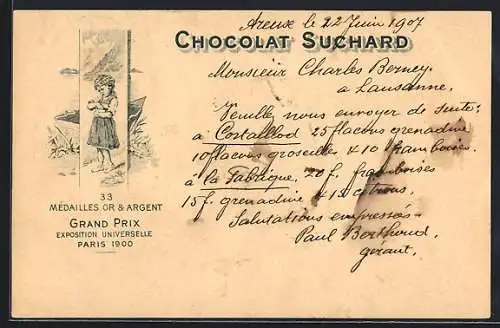 Areuse le 22 Juin 1907
CHOCOLAT SUCHARD
Monsieur Charles Berney
à Lausanne.
Veuillez nous envoyer de suite:
à Cortaillod 25 flacons grenadine
10 flacons groseille & 10 framboises.
à la Fabrique, 20 f. framboises
15 f. grenadine & 15 citrons.
Salutations empressées
Paul Berthoud
gérant.
33
MÉDAILLES OR & ARGENT
GRAND PRIX
EXPOSITION UNIVERSELLE
PARIS 1900